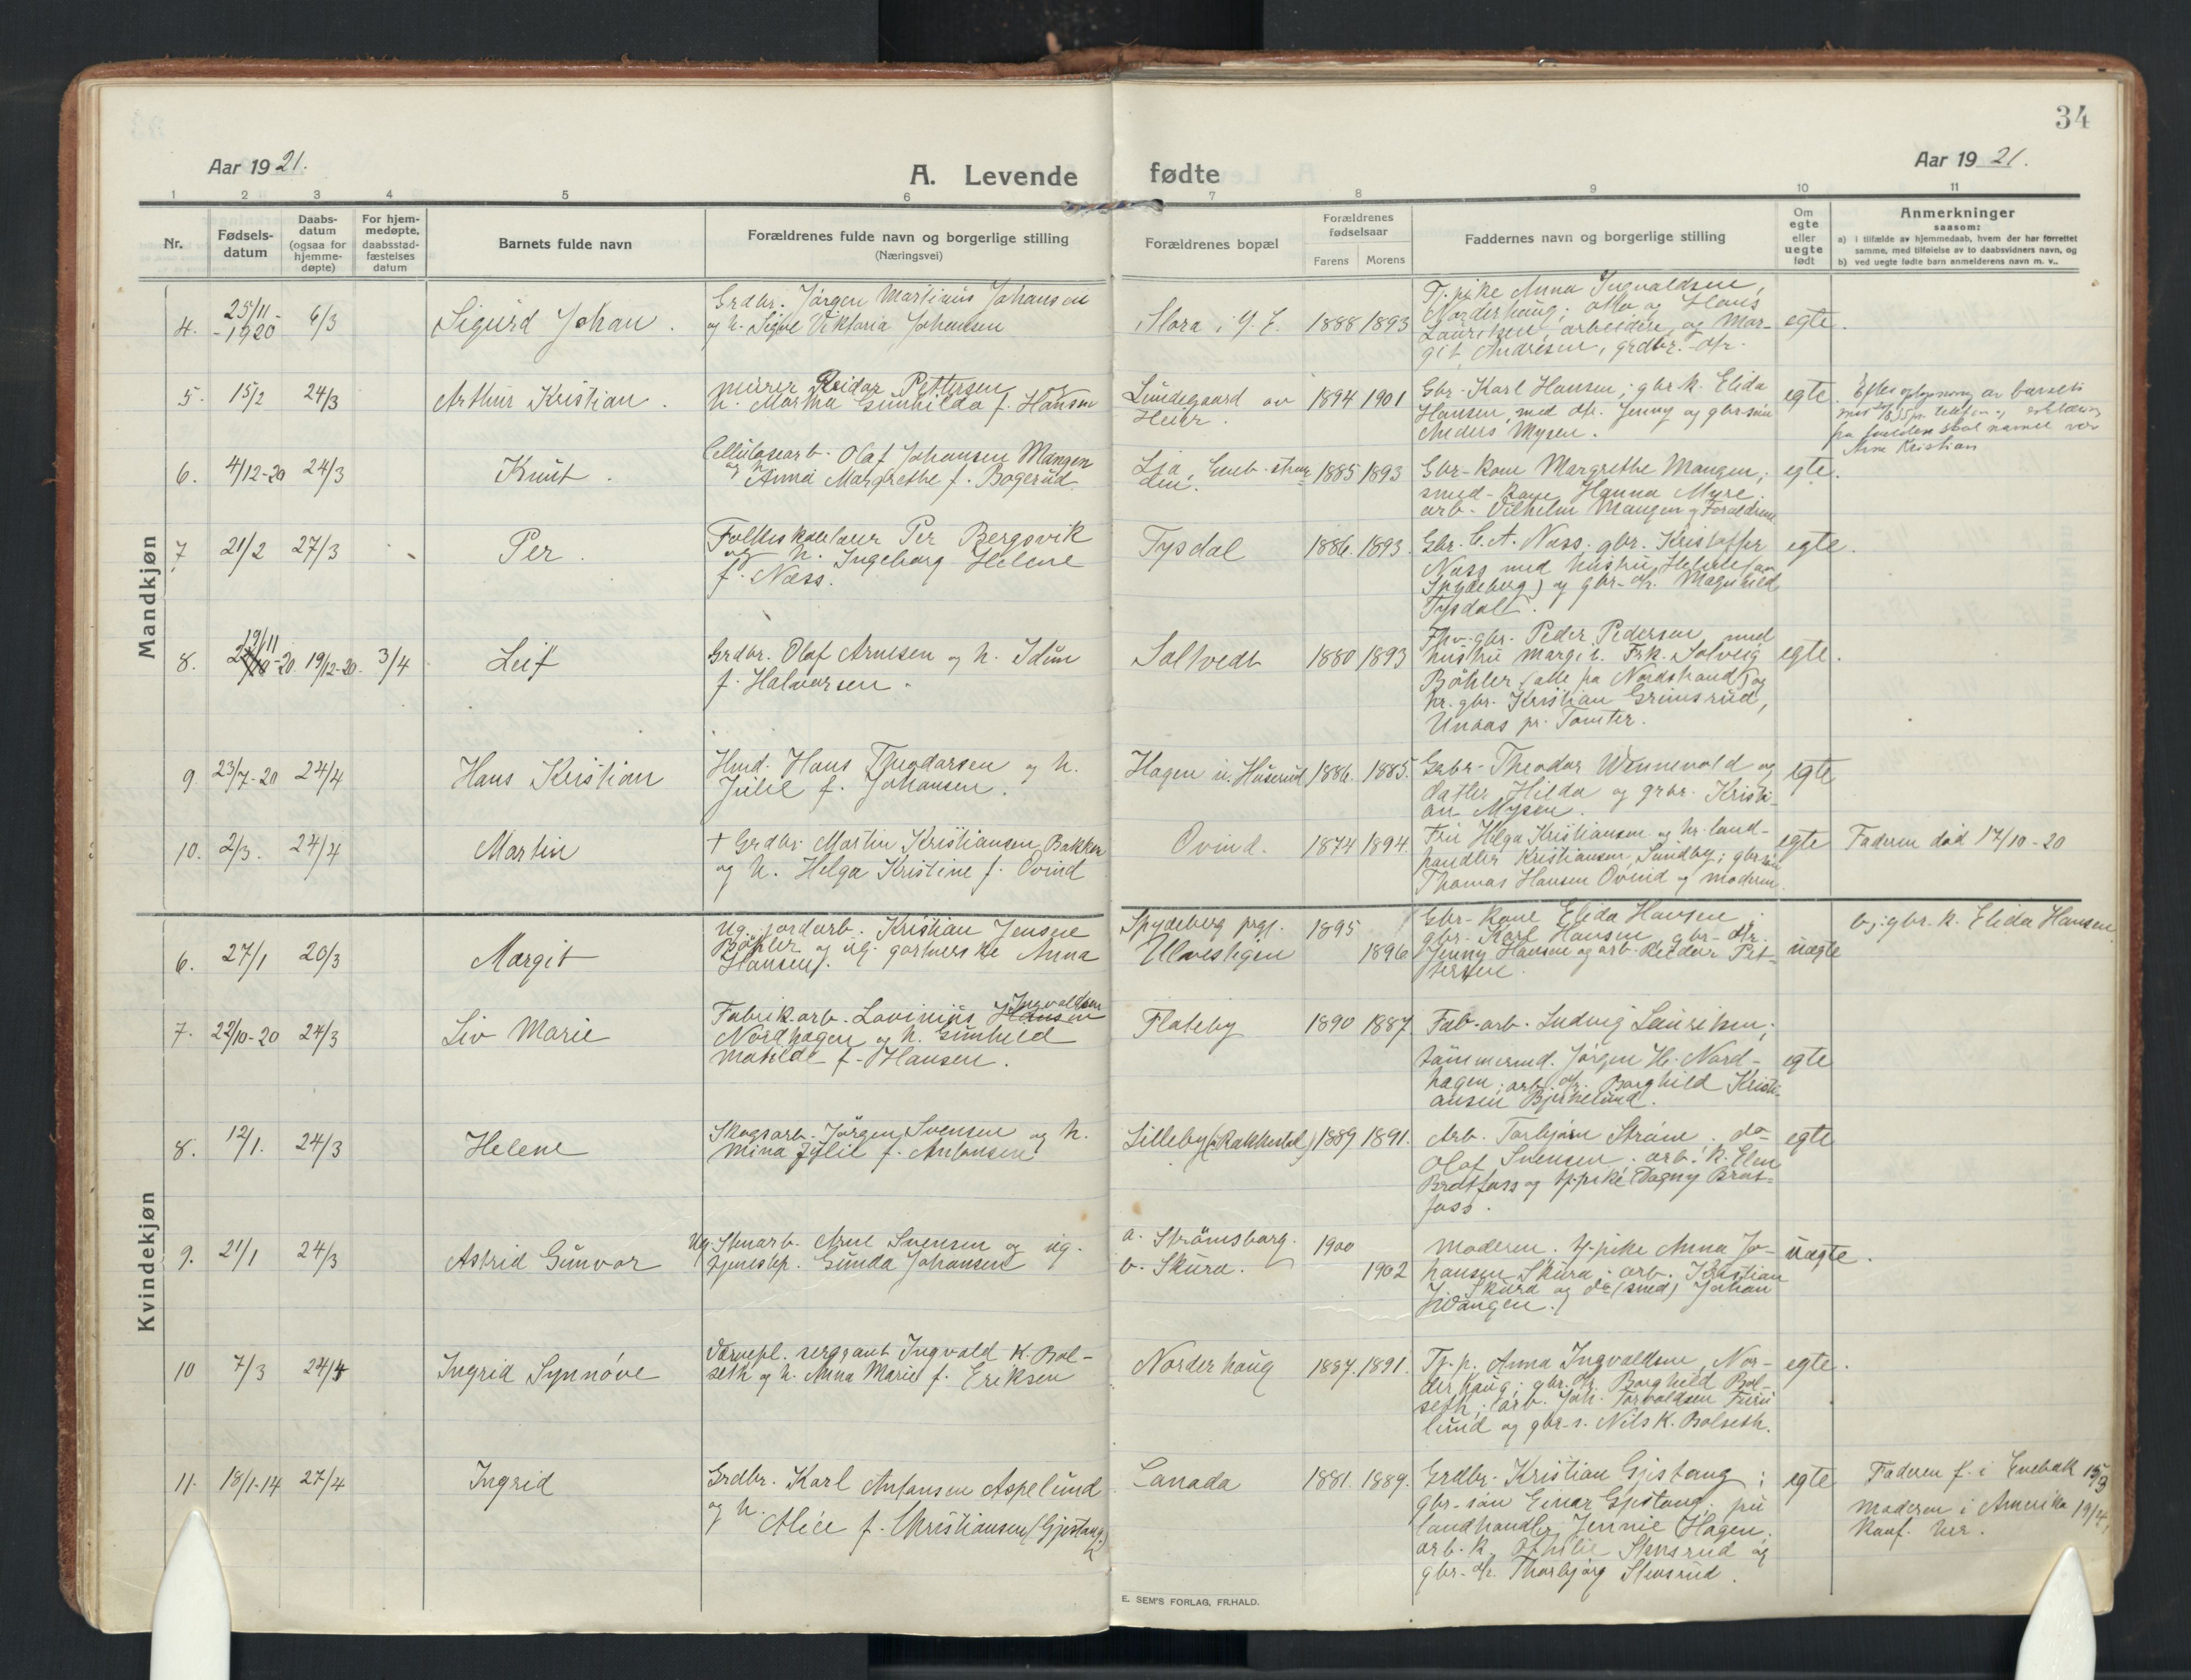 34
Aar 1921.
A. Levende fødte
Aar 1921.
1 2 3 4 5 6 7 8 9 10 11
Nr.
Fødsels-
datum
Daabs-
datum
(ogsaa for
hjemme-
døpte)
For hjem-
medøpte,
daabsstad-
fæstelses
datum
Barnets fulde navn
Forældrenes fulde navn og borgerlige stilling
(Næringsvei)
Forældrenes bopæl
Forældrenes
fødselsaar
Farens Morens
Faddernes navn og borgerlige stilling
Om
egte
eller
uegte
født
Anmerkninger
saasom:
a) i tilfælde av hjemmedaab, hvem der har forrettet
samme, med tilføielse av to daabsvidners navn, og
b) ved uegte fødte barn anmelderens navn m. v..
Mandkjøn
4. 25/11- -1920 6/3 Sigurd Johan.
Grdbr. Jørgen Martinus Johansen
og h. Signe Viktoria Johansen
1888 1893
Tj.pike Anna Ingvaldsen,
Norderhaug; og Hans
Lauritsen, arbeidere, og Mar-
git Andresen, grdbr. dtr.
egte.
5. 15/2 24/3 Arthur Kristian.
Murer Reidar Pettersen og
h. Martha Gunhilda f. Hansen
Lundsgaard av
1894 1901
Gbr. Karl Hansen; gbr.k. Elida
Hansen, med dtr. Jenny og gbr.søn
Anders Mysen.
egte.
navnet
Kristian
6. 4/12-20 24/3 Knut.
Cellulosearb. Olaf Johansen Mangen
og h. Anna Margrethe f. Bøgerud.
1885 1893
Gbr-kone Margrethe Mangen;
smed-kone Hanna Myre;
arb. Vilhelm Mangen og Forældrene
egte.
7 21/2 27/3 Per.
Folkeskolelærer Per Bergsvik
og h. Ingeborg Helene
f. Næss.
Tysdal
1886. 1893.
Gbr. C. A. Næss; gbr. Kristoffer
Næss med hustru Helene (av
Spydeberg) og gbr-dtr. Magnhild
Tysdal.
egte.
8. 19/11-20. 19/12-20. 3/4 Leif
Grdbr. Olaf Arnesen og h. Idun
f. Halvorsen.
Saltvedt
1880 1893
Fhv. gbr. Peder Pedersen med
hustru Margit. Frk. Solveig
Bøhler (alle fra Nordstrand) og
hr. gbr. Kristian Grimsrud,
Unaas pr. Tomter.
egte.
9. 23/7-20 24/4 Hans Kristian
Hmd. Hans Theodorsen og h.
Julie f. Johansen.
Hagen u. Huserud
1886. 1885.
Grbr. Theodor Wennevold og
datter Hilda og grbr. Kristi-
an Mysen.
egte
10. 2/3. 24/4 Martin
+ Grdbr. Martin Kristiansen Bakken
og h. Helga Kristine f. Ovind
Ovind.
1874 1894.
Fru Helga Kristiansen og hr. land-
handler Kristiansen, Sundby; gbr.søn
Thomas Hansen Ovind og moderen.
egte
Faderen død 17/10-20
Kvindekjøn
6. 27/1 20/3 Margit
Ug. jordarb. Kristian Jensen
Bøhler og ug. gartnerske Anna
Hansen.
Spydeberg prgj.
Ulvestigen
1895
1896
Gbr-kone Elida Hansen;
gbr. Karl Hansen, gbr-dtr.
Jenny Hansen og arb. Reidar Pet-
tersen.
uegte
b.: gbr. k. Elida Hansen
7. 22/10-20 24/3 Liv Marie
Fabrik.arb. Lavinius Hansen Ingvaldsen
Nordhagen og h. Gunhild
Matilde f. Hansen.
Flateby
1890 1887
Fab-arb. Ludvig Lauritsen;
tømmermd. Jørgen H. Nord-
hagen; arb. dtr. Borghild Kristi-
ansen Bjerkelund.
egte
8. 12/1. 24/3 Helene
Skogsarb. Jørgen Svensen og h.
Mina Julie f. Antonsen
Lilleby (i Rakkestad)
1889 1891.
Arb. Torbjørn Strøm. do
Olaf Svensen. arb. k. Elen
Bratfoss og tj.pike Dagny Brat-
foss.
egte
9. 21/1 24/3 Astrid Gunvor
Ug. Stenarb. Arne Svensen og ug.
tjenestep. Gunda Johansen
a. Strömsborg.
b. Skura.
1900
1902
Moderen. tj-pike Anna Jo-
hansen Skura; arb. Kristian
Skura og do (smed) Johan
uegte.
10 7/3 24/4 Ingrid Synnøve
Værnepl. sergeant Ingvald K. Bol-
seth og h. Anna Marie f. Eriksen
Norderhaug
1887. 1891.
Tj.p. Anna Ingvaldsen, Nor-
derhaug; gbr. dtr. Borghild Bol-
seth; arb. Joh. Torvaldsen Furu
lund og gbr-s. Nils K. Bolseth.
egte.
11. 18/1-14 27/4 Ingrid
Grdbr. Karl Antonsen Aspelund
og h. Alice f. Christiansen (Gjestang)
Canada
1881. 1889.
Grdbr. Kristian Gjestang;
gbr-søn Einar Gjestang; fru
landhandler Jennie Hagen;
arb.k. Othilie Stensrud og
gbr-dtr. Thorbjørg Stensrud.
egte
Faderen f. i Enebak 15/3
Moderen i Amerika 19/4,
konf. her.
E. SEM'S FORLAG, FR.HALD.